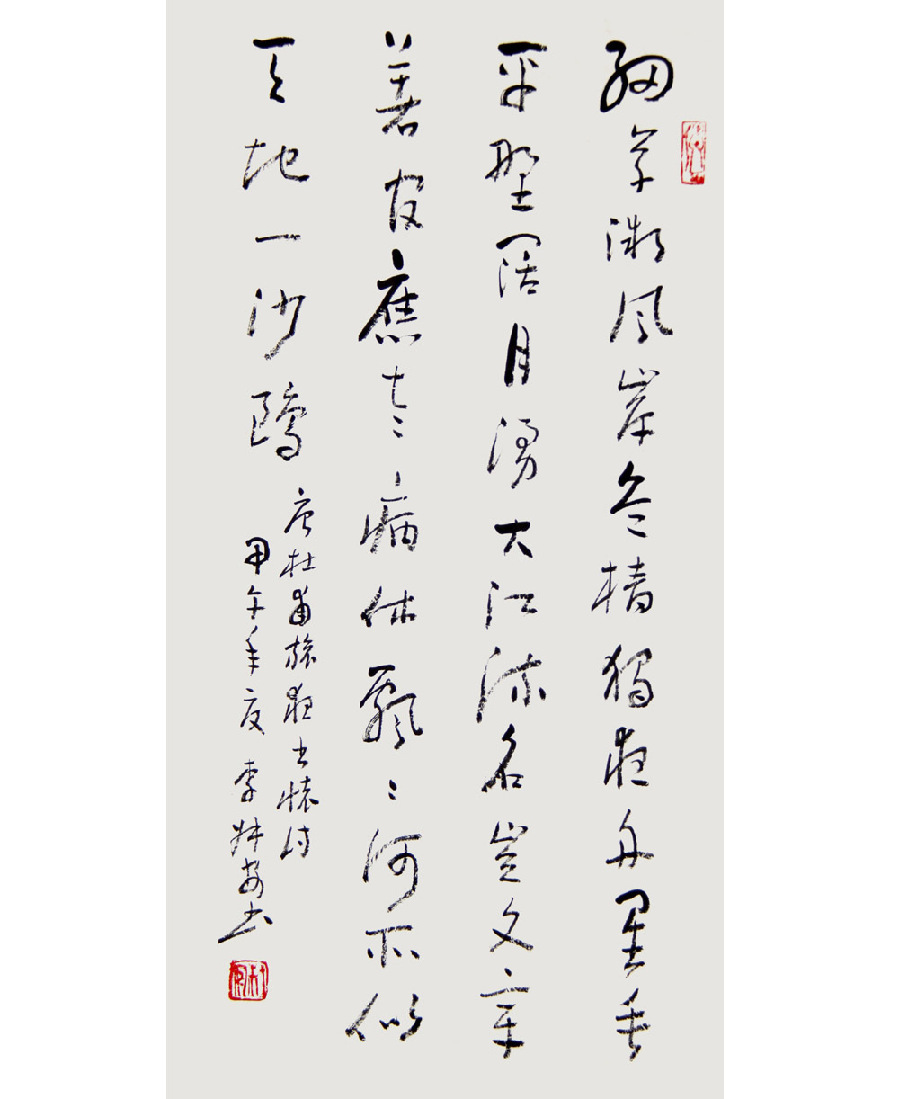 細草微風岸危檣獨夜舟星垂
平野闊月湧大江流名豈文章
著官應老病休飄々何所似
天地一沙鷗
唐杜甫旅夜書懷詩
甲午年夏李書